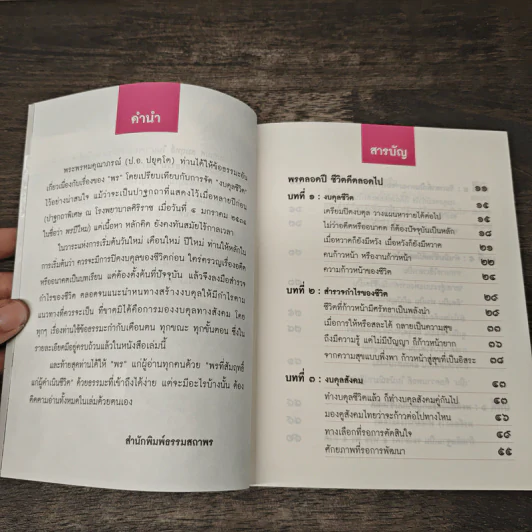 คำนำ
พระพรหมคุณาภรณ์ (ป.อ. ปยุตฺโต) ท่านได้ให้ข้อธรรมะอัน
เกี่ยวเนื่องกับเรื่องของ "พร" โดยเปรียบเทียบกับการจัด "งบดุลชีวิต"
ไว้อย่างน่าสนใจ แม้ว่าจะเป็นปาฐกถาที่แสดงไว้เมื่อหลายปีก่อน
(ปาฐกถาพิเศษ ณ โรงพยาบาลศิริราช เมื่อวันที่ ๔ มกราคม
ในชื่อว่า พรปีใหม่) แต่เนื้อหา หลักคิด ยังคงทันสมัยไร้กาลเวลา
ในวาระแห่งการเริ่มต้นวันใหม่ เดือนใหม่ ปีใหม่ ท่านให้หลักใน
การเริ่มต้นว่า ควรจะมีการปิดงบดุลของชีวิตก่อน ใคร่ครวญเรื่องอดีต
หรืออนาคตเป็นบทเรียน แต่ต้องตั้งต้นที่ปัจจุบัน แล้วจึงลงมือสำรวจ
กำไรของชีวิต ตลอดจนแนะนำหนทางสร้างงบดุลให้มีกำไรตาม
แนวทางที่ควรจะเป็น ที่ขาดมิได้คือการมองงบดุลทางสังคม โดย
ทุกๆ เรื่องท่านใช้ข้อธรรมะกำกับเตือนคน ทุกขณะ ทุกขั้นตอน ซึ่งใน
รายละเอียดมีอยู่ครบถ้วนแล้วในหนังสือเล่มนี้
และท้ายสุดท่านได้ให้ "พร" แก่ผู้อ่านทุกคนด้วย "พรที่สัมฤทธิ์
แก่ผู้ดำเนินชีวิต" ด้วยธรรมะที่เข้าถึงได้ง่าย แต่จะมีอะไรบ้างนั้น ต้อง
ติดตามอ่านทั้งหมดในเล่มด้วยตนเอง
สำนักพิมพ์ธรรมสภาพร
สารบัญ
พรตลอดปี ชีวิตดีตลอดไป ๑๑
บทที่ ๑ : งบดุลชีวิต ๑๕
เตรียมปิดงบดุล วางแผนหารายได้ต่อไป ๑๕
ไม่ว่าอดีตหรืออนาคต ก็ต้องปัจจุบันเป็นหลัก ๑๘
เมื่อหวาดก็ยังมีหวัง เมื่อหวังก็ยังมีหวาด ๒๑
คนก้าวหน้า หรืองานก้าวหน้า ๒๒
ความก้าวหน้าของชีวิต ๒๕
บทที่ ๒ : สำรวจกำไรของชีวิต ๒๘
ชีวิตที่ก้าวหน้ามีศรัทธาเป็นพลังนำ ๒๘
เมื่อการให้หรือสละได้ กลายเป็นความสุข
ถึงมีความรู้ แต่ไม่มีปัญญา ก็ก้าวหน้าได้ยาก ๓๓
จากความสุขแบบพึ่งพา ก้าวหน้าสู่สุขที่เป็นอิสระ
บทที่ ๓ : งบดุลสังคม ๔๑
ทำงบดุลชีวิตแล้ว ก็ทำงบดุลสังคมคู่กันไป ๔๑
มองดูสังคมไทยว่าจะก้าวต่อไปทางไหน
ทางเลือกที่รอการตัดสินใจ
ศักยภาพที่รอการพัฒนา ๕๕